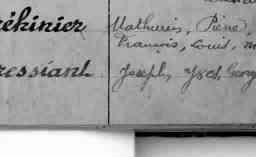 ékinier Mathurin, Pierre,
François, Louis, M
ressiant Joseph, Yset, Georg